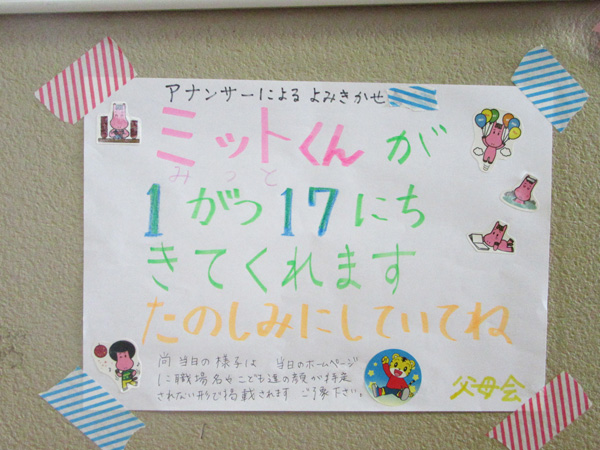 アナンサーによる よみきかせ
ミットくんが
みっと
1がつ17にち
きてくれます
たのしみにしていてね
尚 当日の様子は 当日のホームページ
に職場名やこども達の顔が特定
されない形で掲載されます ご了承下さい。
父母会